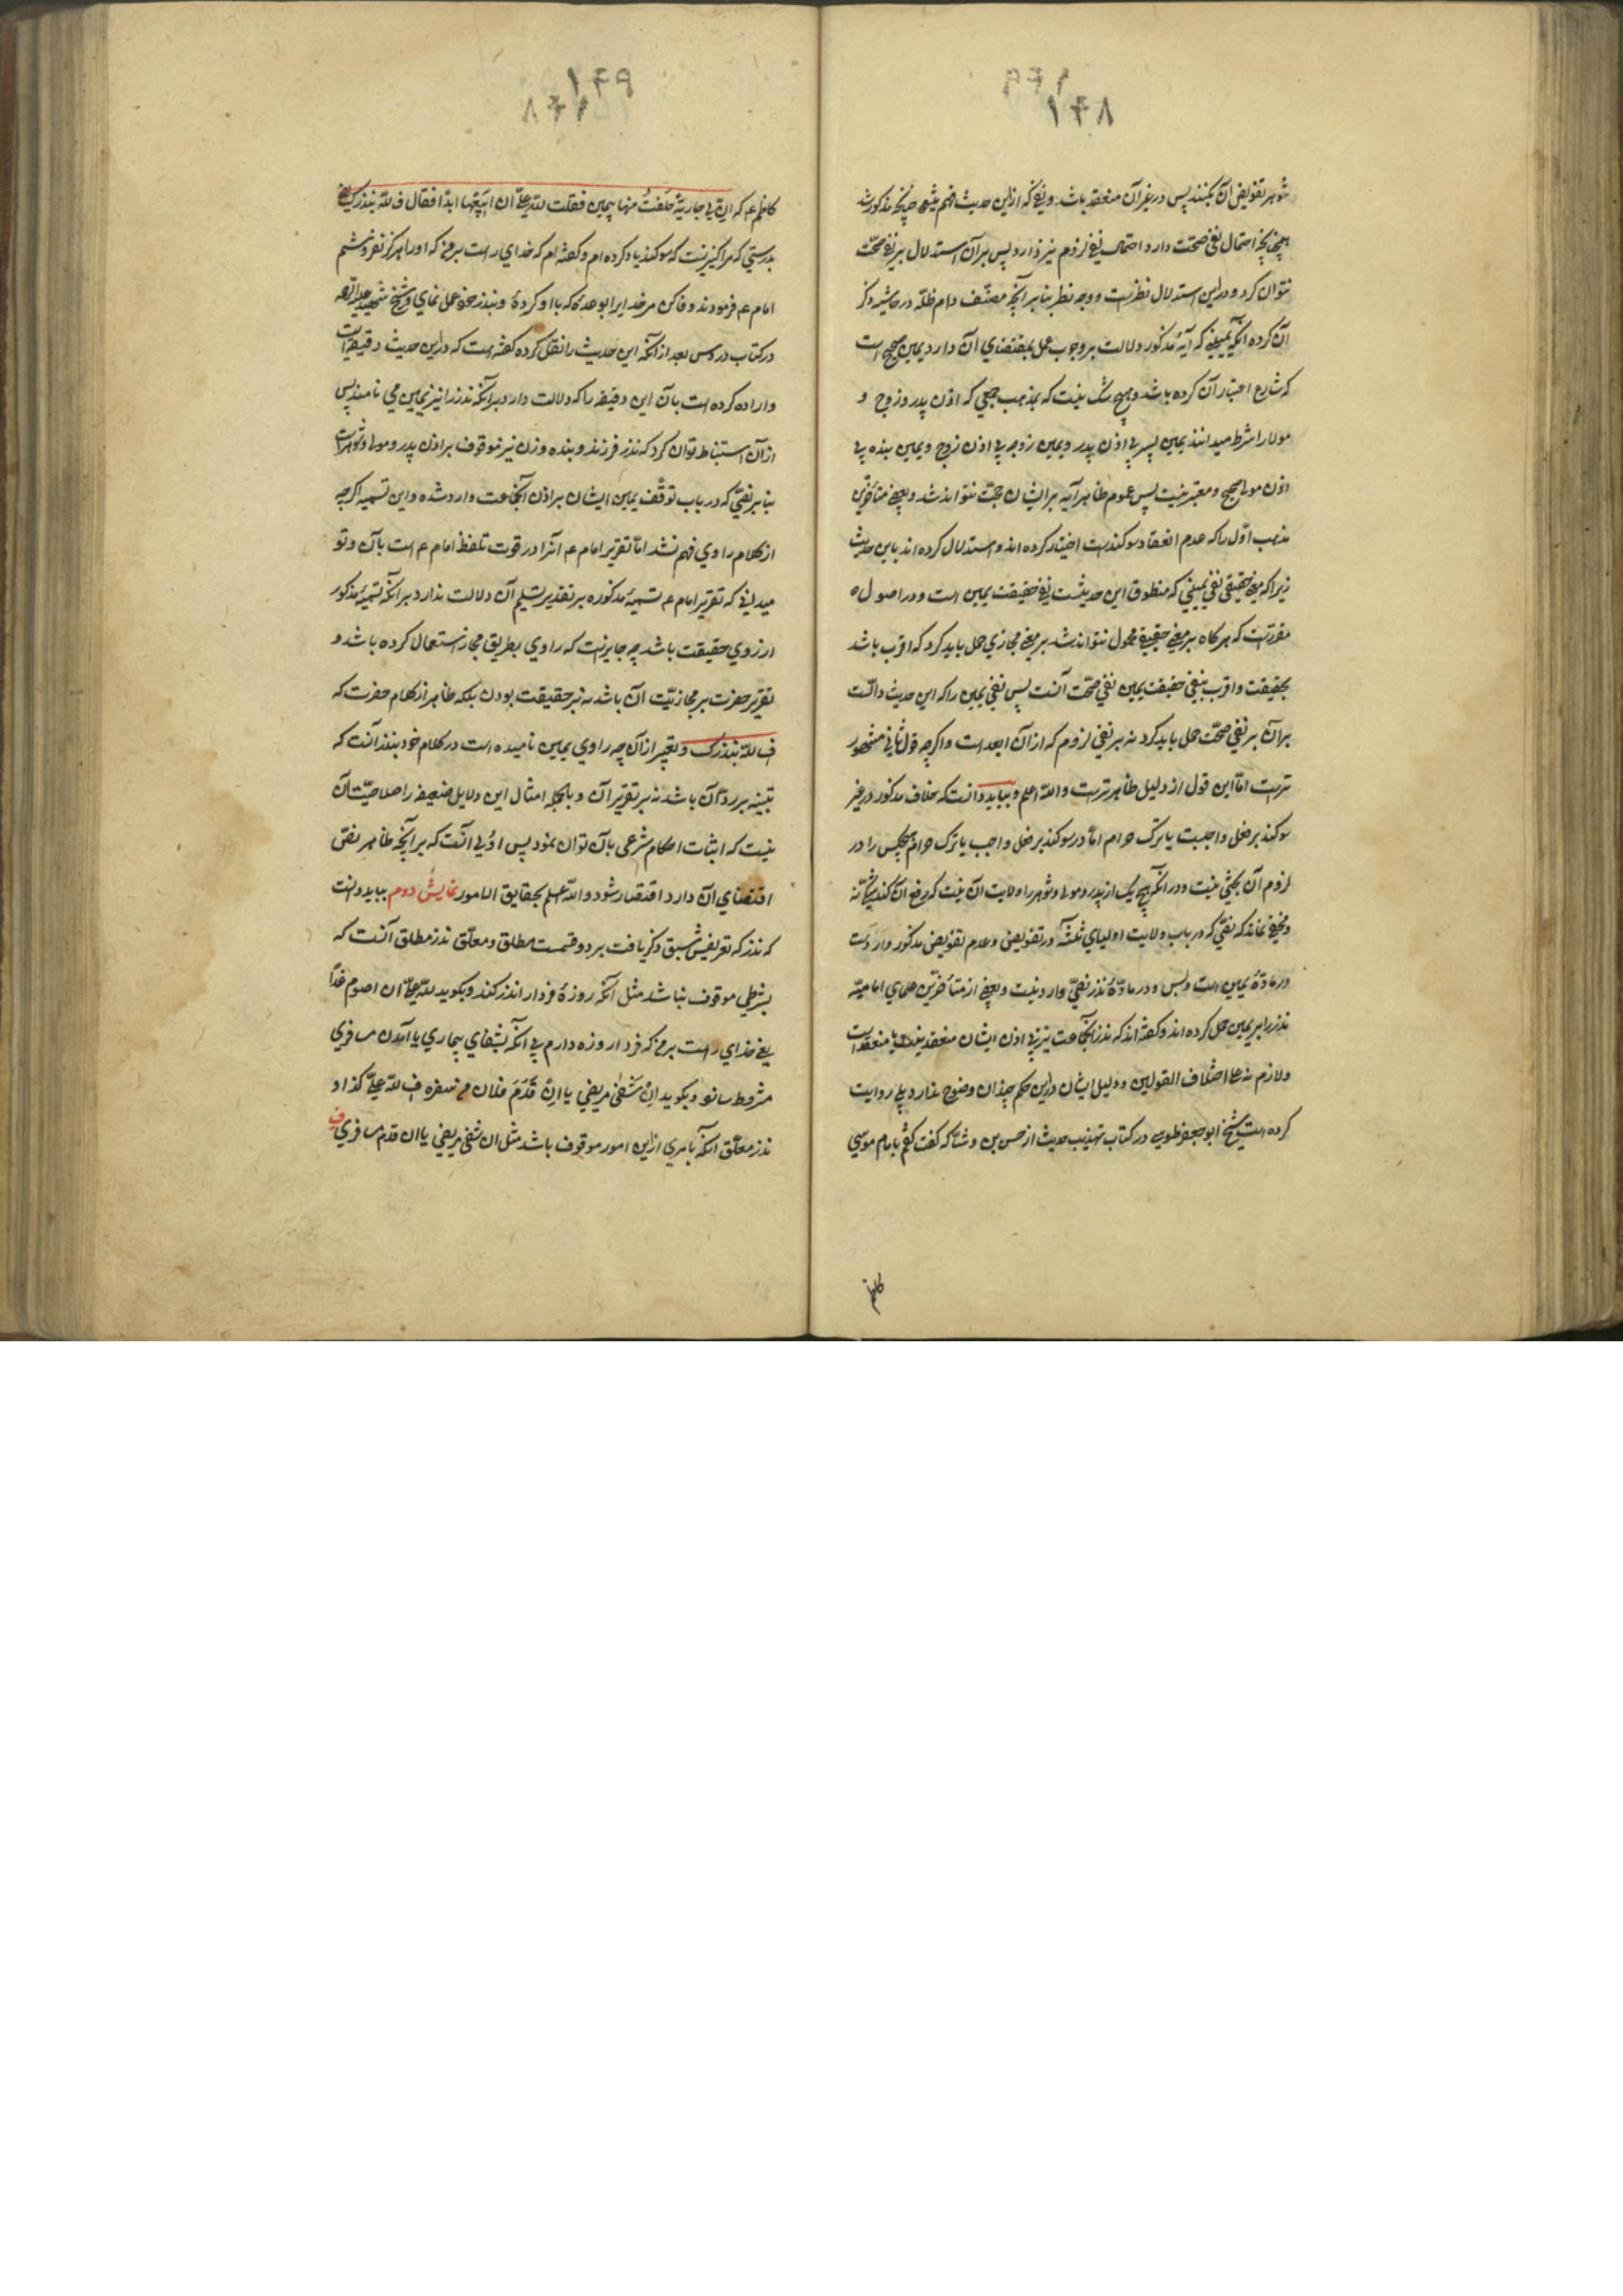 ۱۷۸
شوهر تفویض آن بکنند پس در غیر آن منعقد باشد و نفی که ازین حدیث فهم میشود چنانچه مذکور شد
همچنانچه احتمال نفی صحت دارد احتمال نفی لزوم نیز دارد پس بر آن استدلال بر نفی صحت
نتوان کرد و درین استدلال نظر است و وجه نظر بنا بر آنچه مصنف دام ظله در حاشیه ذکر
آن کرده آنکه یمینی که آیه مذکور دلالت بر وجوب عمل بمقتضای آن دارد یمین صحیح است
که شارع اعتبار آن کرده باشد و هیچ شک نیست که بمذهب جمعی که اذن پدر و زوج و
مولا را شرط میدانند یمین پسر بی اذن پدر و یمین زوجه بی اذن زوج و یمین بنده بی
اذن مولا صحیح و معتبر نیست پس عموم ظاهر آیه بر ایشان حجت نتواند شد و بعضی متأخرین
مذهب اول را که عدم انعقاد سوکند است اختیار کرده اند و استدلال کرده اند باین حدیث
زیرا که معنی حقیقی نفی یمینی که منطوق این حدیثست نفی حقیقت یمین است و در اصول
مقررست که هرکاه بر معنی حقیقی محمول نتواند شد بر معنی مجازی حمل باید کرد که اقرب باشد
بحقیقت و اقرب بنفی حقیقت یمین نفی صحت آنست پس نفی یمین را که این حدیث دالست
بر آن بر نفی صحت حمل باید کرد نه بر نفی لزوم که از آن ابعد است و اکرچه قول ثانی مشهور
ترست اما این قول از دلیل ظاهرترست والله اعلم و بباید دانست که خلاف مذکور در غیر
سوکند بر فعل واجبست یا ترک حرام اما در سوکند بر فعل واجب یا ترک حرام هیچکس را در
لزوم آن بحثی نیست و در آنکه هیچ یک از پدر و مولا و شوهر را ولایت آن نیست که رفع آن کند
و مخفی نماند که نصی که در باب ولایت اولیای ثلثه در تفویض و عدم تفویض مذکور واردست
در ماده یمین است و بس و در ماده نذر نصی وارد نیست و بعضی از متأخرین علمای امامیه
نذر را بر یمین حمل کرده اند و کفته اند که نذر آنجماعت نیز بی اذن ایشان منعقد نیست یا منعقدست
و لازم نه علی اختلاف القولین و دلیل ایشان درین حکم چندان وضوح ندارد بلی روایت
کرده است شیخ ابو جعفر طوسی در کتاب تهذیب حدیث از حسن بن وشا که کفت کفتم بامام موسی
کاظم
کاظم ع که ان لی جاریة حلفت منها بیمین فقلت لله علی ان ابیعها ابدا فقال ف لله بنذرک یعنی
بدرستی که مرا کنیزیست که سوکند یاد کرده ام و کفته ام که خدای راست بر من که او را هرکز نفروشم
امام ع فرمودند وفا کن مر خدایرا بوعده که باو کرده و بنذر خود عمل نمای و شیخ شهید علیه الرحمه
در کتاب دروس بعد از آنکه این حدیث را نقل کرده کفته است که درین حدیث دقیقه ایست
و اراده کرده است بآن این دقیقه را که دلالت دارد بر آنکه نذر را نیز یمین می نامند پس
از آن استنباط توان کرد که نذر فرزند و بنده و زن نیز موقوف بر اذن پدر و مولا و شوهرست
بنا بر نصی که در باب توقف یمین ایشان بر اذن آنجماعت وارد شده و این تسمیه اکرچه
از کلام راوی فهم شد اما تقریر امام ع آنرا در قوت تلفظ امام ع است بآن و تو
میدانی که تقریر امام ع تسمیه مذکوره بر تقدیر تسلیم آن دلالت ندارد بر آنکه تسمیه مذکور
از روی حقیقت باشد چه جایزست که راوی بطریق مجاز استعمال کرده باشد و
تقریر حضرت بر مجازیت آن باشد نه بر حقیقت بودن بلکه ظاهر از کلام حضرت که
ف لله بنذرک و تعبیر از آن چه راوی یمین نامیده است در کلام خود بنذر آنست که
تنبیه بر رد آن باشد نه بر تقریر آن و بالجمله امثال این دلایل ضعیفه را صلاحیت آن
نیست که اثبات احکام شرعی بآن توان نمود پس اولی آنست که بر آنچه ظاهر نص
اقتضای آن دارد اقتصار شود والله اعلم بحقایق الامور نمایش دوم بباید دانست
که نذر که تعریفش سبق ذکر یافت بر دو قسمست مطلق و معلق نذر مطلق آنست که
بشرطی موقوف نباشد مثل آنکه روزۀ فردا را نذر کند و بکوید لله علی ان اصوم غدا
یعنی خدای راست بر من که فردا روزه دارم بی آنکه بشفای بیماری یا آمدن مسافری
مشروط سازد و بکوید ان شفی مریضی یا ان قدم فلان من سفره ف لله علی کذا و
نذر معلق آنکه بامری ازین امور موقوف باشد مثل ان شفی مریضی یا ان قدم مسافری ف